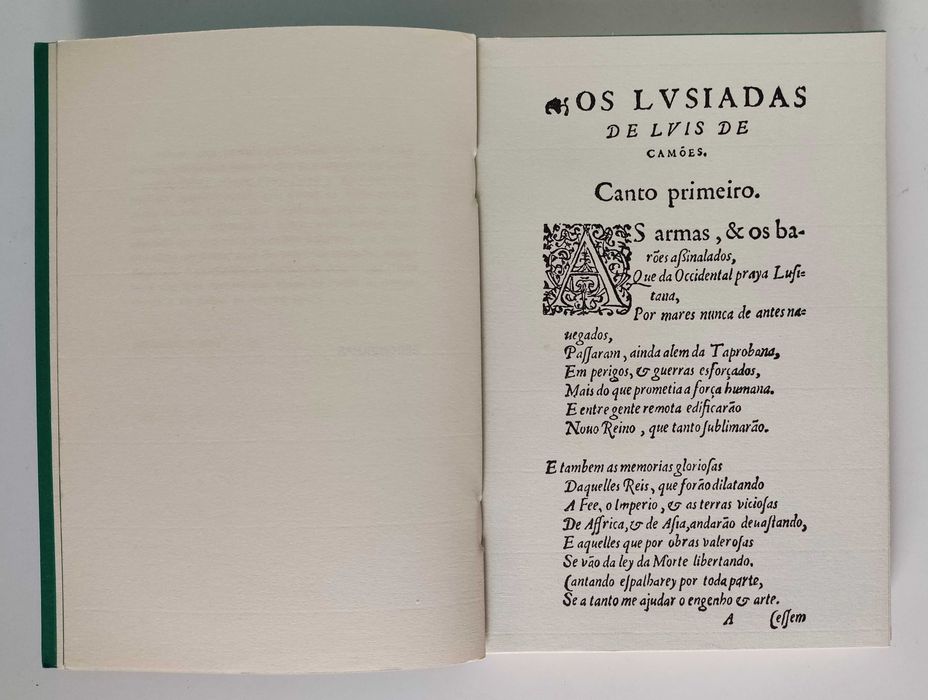 OS LVSIADAS
DE LVIS DE
CAMÕES.
Canto primeiro.
AS armas, & os ba-
rões aßinalados,
Que da Occidental praya Luſi-
tana,
Por mares nunca de antes na-
uegados,
Paſſaram, ainda alem da Taprobana,
Em perigos, & guerras esforçados,
Mais do que prometia a força humana.
E entre gente remota edificarão
Nouo Reino, que tanto ſublimarão.
E tambem as memorias glorioſas
Daquelles Reis, que forão dilatando
A Fee, o Imperio, & as terras vicioſas
De Affrica, & de Aſia, andarão deuaſtando,
E aquelles que por obras valeroſas
Se vão da ley da Morte libertando.
Cantando eſpalharey por toda parte,
Se a tanto me ajudar o engenho & arte.
A Ceſſem